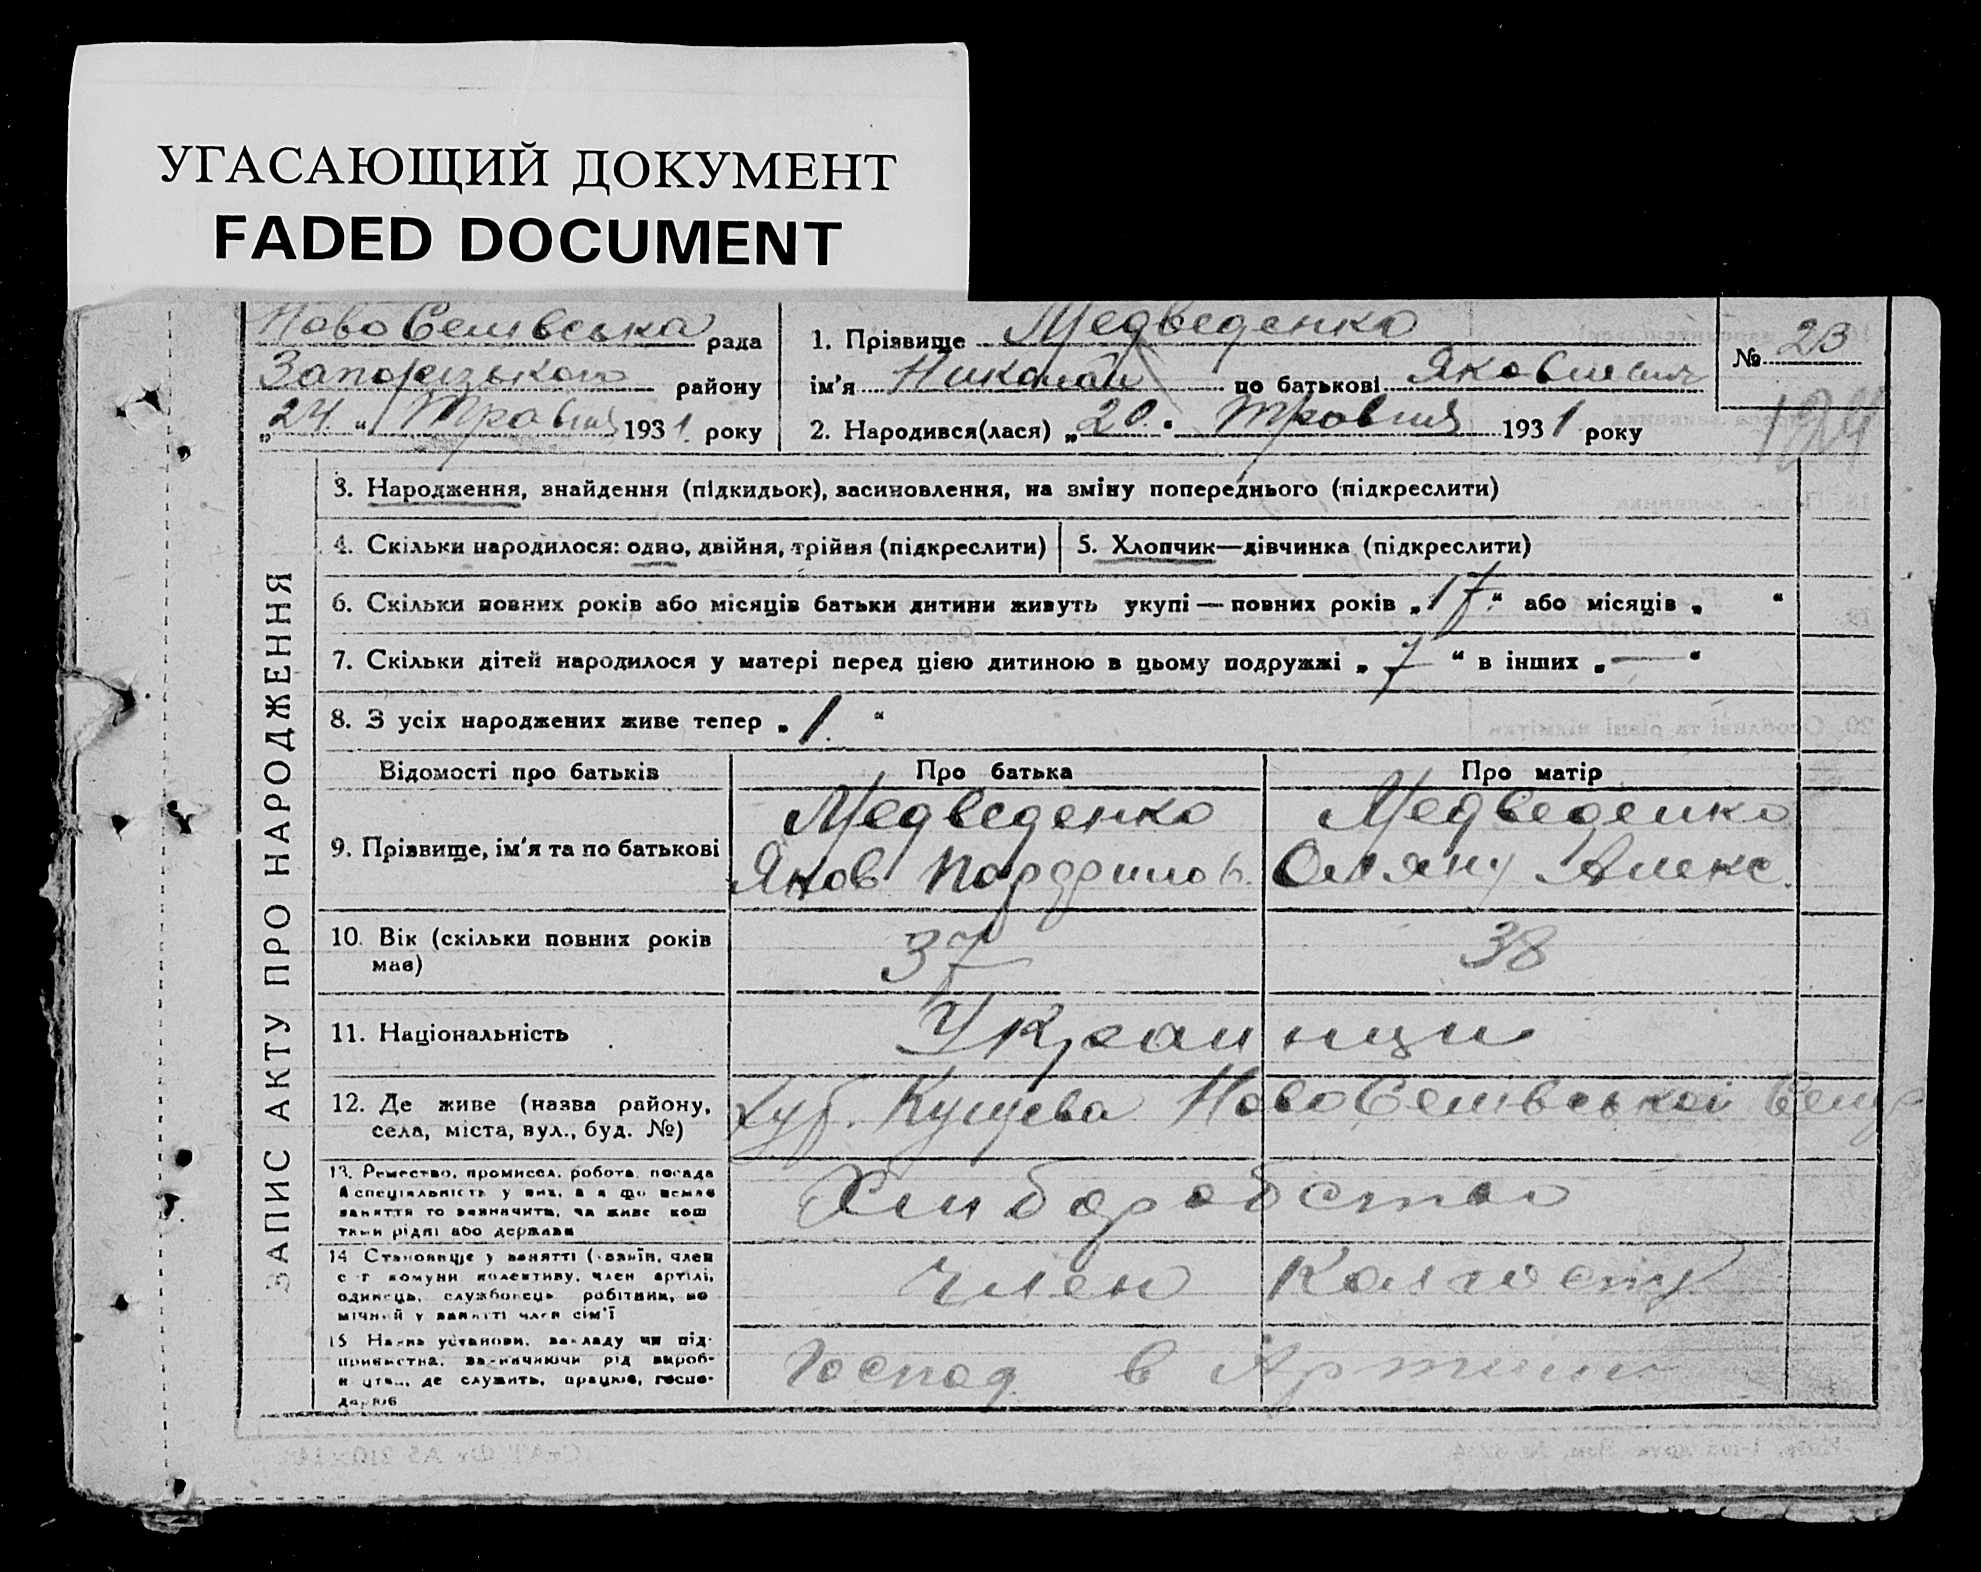 УГАСАЮЩИЙ ДОКУМЕНТ
FADED DOCUMENT
НовоСелівська рада
Запорізького району
„24“ Травня 1931 року
1. Прізвище Медведенко
ім’я Николай по батькові Яковлевич
2. Народився(лася) „20“ Травня 1931 року
№ 23
124
ЗАПИС АКТУ ПРО НАРОДЖЕННЯ
3. Народження, знайдення (підкидьок), засиновлення, на зміну попереднього (підкреслити)
4. Скільки народилося: одно, двійня, трійня (підкреслити)
5. Хлопчик—дівчинка (підкреслити)
6. Скільки повних років або місяців батьки дитини живуть укупі — повних років „17“ або місяців „ “
7. Скільки дітей народилося у матері перед цією дитиною в цьому подружжі „7“ в інших „—“
8. З усіх народжених живе тепер „1.“
Відомості про батьків
Про батька
Про матір
9. Прізвище, ім’я та по батькові
Медведенко
Яков
Медведенко
Алекс.
10. Вік (скільки повних років має)
37
38
11. Національність
Украинци
12. Де живе (назва району, села, міста, вул., буд. №)
Хут. Кущева НовоСелівської
13. Ремество, промисел, робота, посада
й спеціяльність у них, а якщо немає
заняття то зазначити, чи живе кош
тами рідні або держави
Хліборобство
14. Становище у занятті (хазяїн, член
с-г комуни, колективу, член артілі,
одинець, службовець, робітник, по
мічний у занятті член сім’ї
член Колгоспу
15 Назва установи, закладу чи під-
приємства, зазначаючи рід вироб-
ництва, де служить, працює, госпо-
дарює
Господ. в Артили